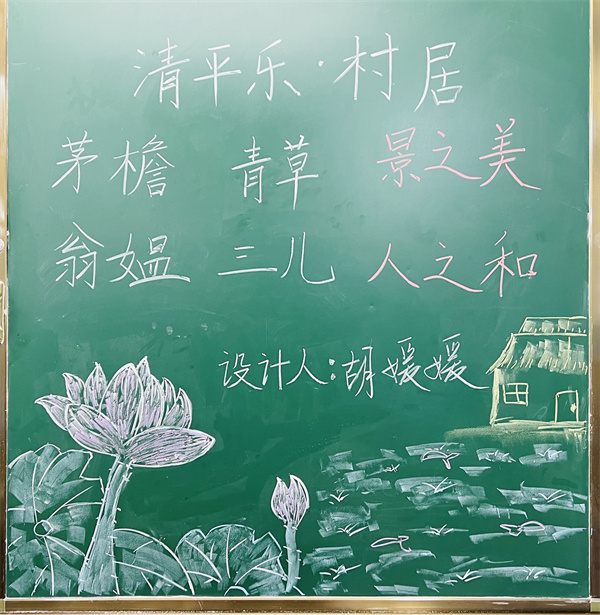 清平乐·村居
茅檐 青草 景之美
翁媪 三儿 人之和
设计人:胡媛媛